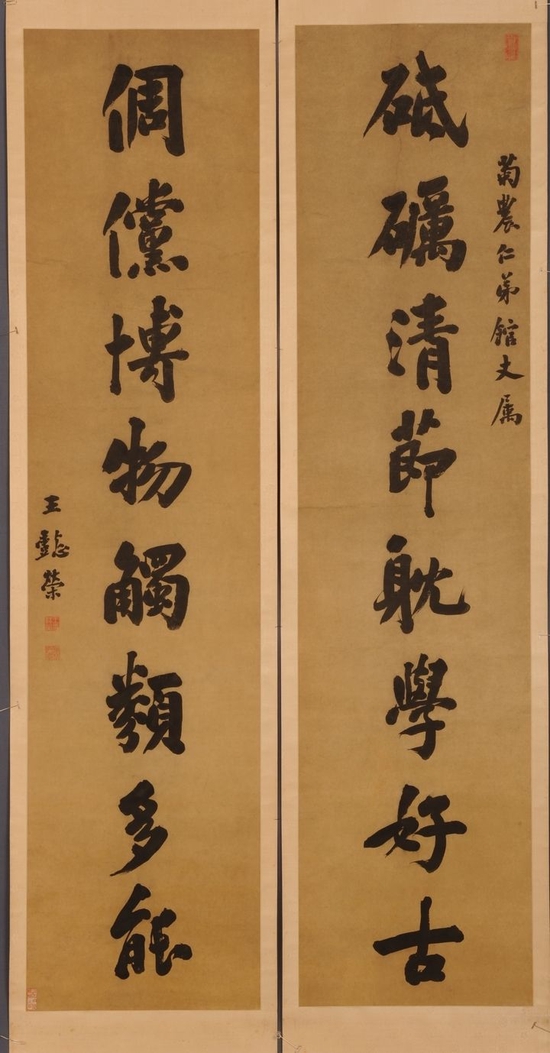 菊農仁弟館丈属
砥礪清節躭學好古
倜儻博物觸類多能
王懿榮